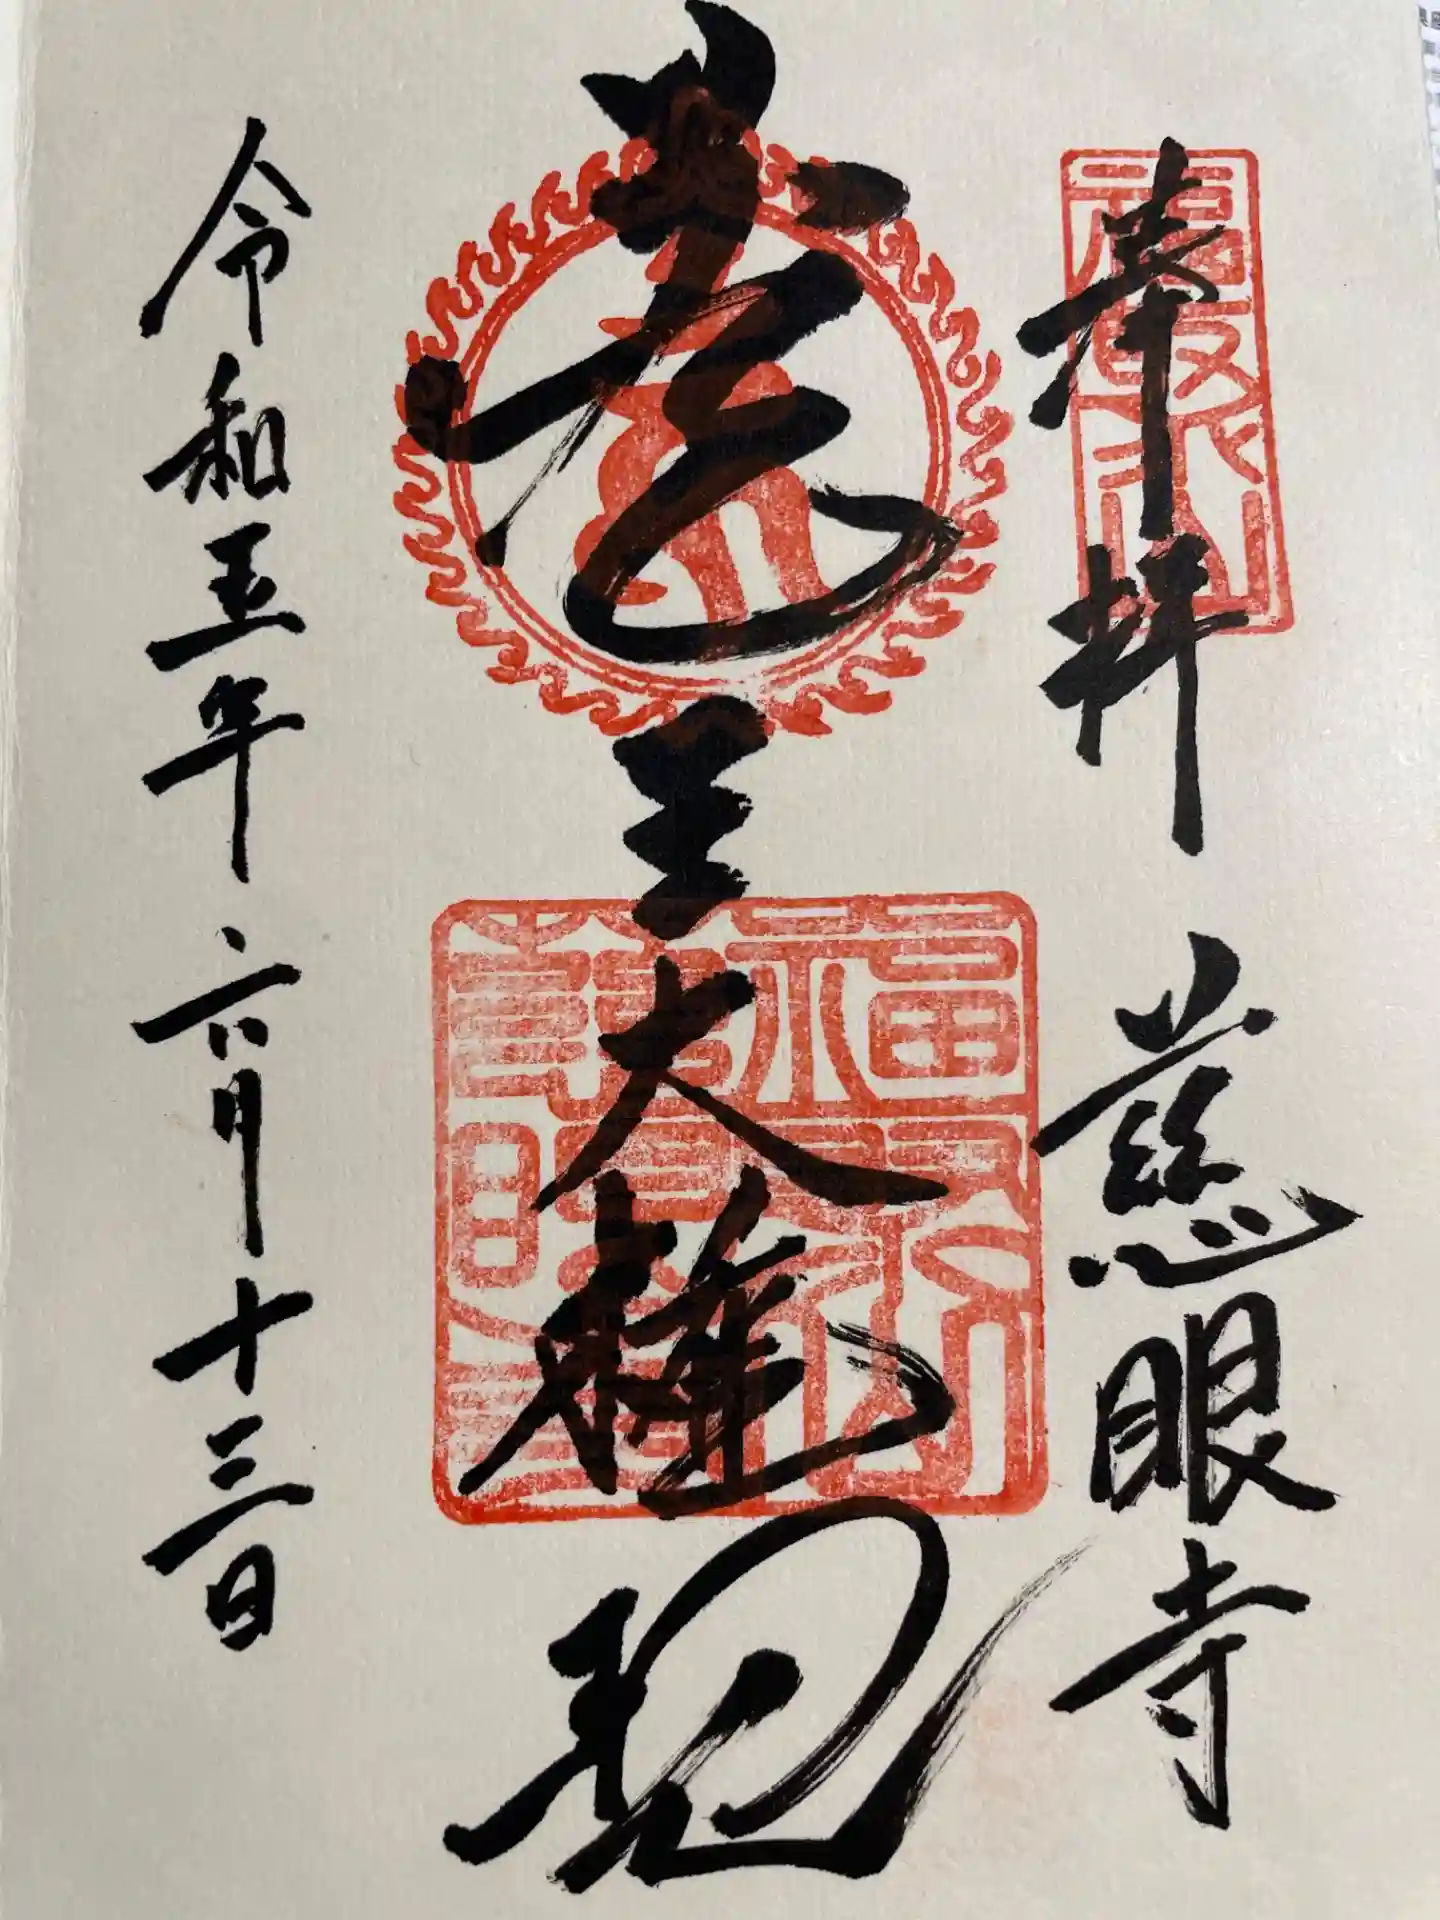 福聚山
奉拝 慈眼寺
蔵王大権現
令和五年六月十三日